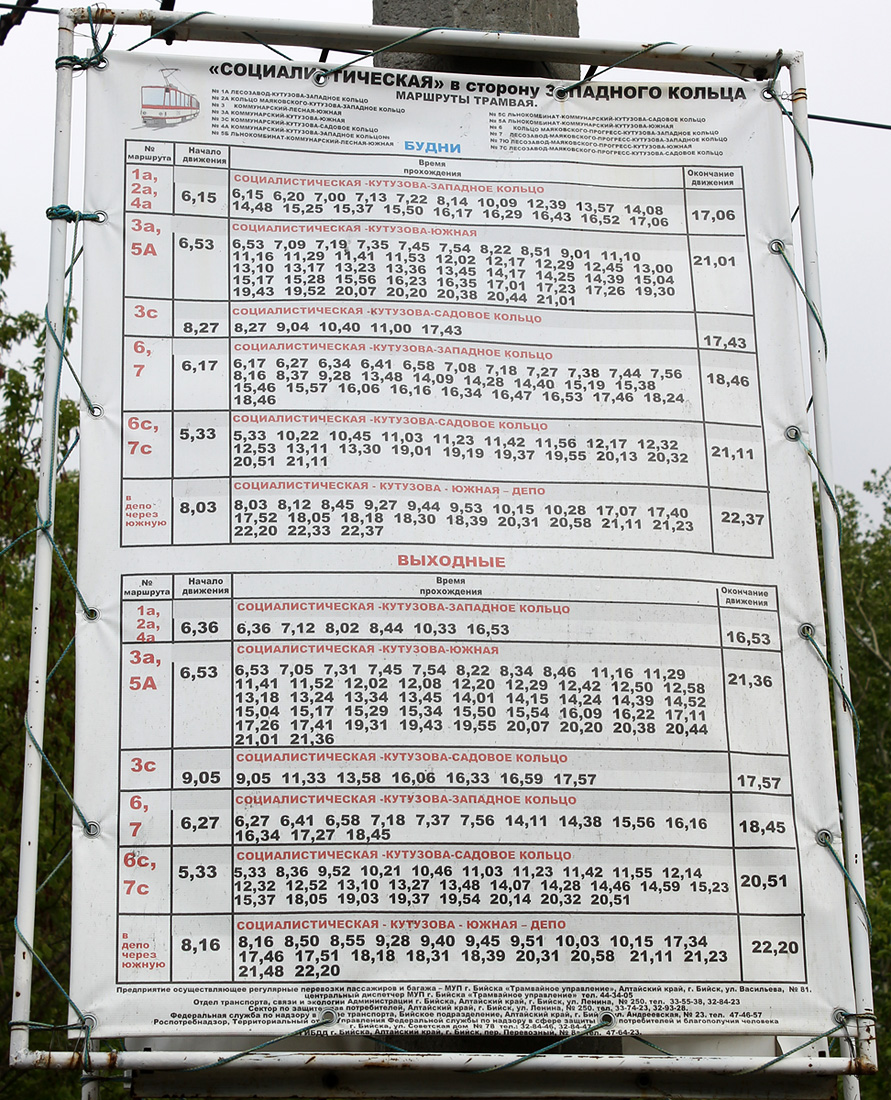 «СОЦИАЛИСТИЧЕСКАЯ» в сторону ЗАПАДНОГО КОЛЬЦА
МАРШРУТЫ ТРАМВАЯ.
№ 1А ЛЕСОЗАВОД-КУТУЗОВА-ЗАПАДНОЕ КОЛЬЦО
№ 2А КОЛЬЦО МАЯКОВСКОГО-КУТУЗОВА-ЗАПАДНОЕ КОЛЬЦО
№ 3 КОММУНАРСКИЙ-ЛЕСНАЯ-ЮЖНАЯ
№ 3А КОММУНАРСКИЙ-КУТУЗОВА-ЮЖНАЯ
№ 3С КОММУНАРСКИЙ-КУТУЗОВА-САДОВОЕ КОЛЬЦО
№ 4А КОММУНАРСКИЙ-КУТУЗОВА-ЗАПАДНОЕ КОЛЬЦО№
№ 5Б ЛЬНОКОМБИНАТ-КОММУНАРСКИЙ-ЛЕСНАЯ-ЮЖНАЯ
№ 5С ЛЬНОКОМБИНАТ-КОММУНАРСКИЙ-КУТУЗОВА-САДОВОЕ КОЛЬЦО
№ 5А ЛЬНОКОМБИНАТ-КОММУНАРСКИЙ-КУТУЗОВА-ЮЖНАЯ
№ 6 КОЛЬЦО МАЯКОВСКОГО-ПРОГРЕСС-КУТУЗОВА-ЗАПАДНОЕ КОЛЬЦО
№ 7 ЛЕСОЗАВОД-МАЯКОВСКОГО-ПРОГРЕСС-КУТУЗОВА-ЗАПАДНОЕ КОЛЬЦО
№ 7Ю ЛЕСОЗАВОД-МАЯКОВСКОГО-ПРОГРЕСС-КУТУЗОВА-ЮЖНАЯ
№ 7С ЛЕСОЗАВОД-МАЯКОВСКОГО-ПРОГРЕСС-КУТУЗОВА-САДОВОЕ КОЛЬЦО
БУДНИ
№ маршрута Начало движения Время прохождения Окончание движения
1а, 2а, 4а
6,15
СОЦИАЛИСТИЧЕСКАЯ -КУТУЗОВА-ЗАПАДНОЕ КОЛЬЦО
6,15 6,20 7,00 7,13 7,22 8,14 10,09 12,39 13,57 14,08
14,48 15,25 15,37 15,50 16,17 16,29 16,43 16,52 17,06
17,06
3а, 5А
6,53
СОЦИАЛИСТИЧЕСКАЯ -КУТУЗОВА-ЮЖНАЯ
6,53 7,09 7,19 7,35 7,45 7,54 8,22 8,51 9,01 11,10
11,16 11,29 11,41 11,53 12,02 12,17 12,29 12,45 13,00
13,10 13,17 13,23 13,36 13,45 14,17 14,25 14,39 15,04
15,17 15,28 15,56 16,23 16,35 17,01 17,23 17,26 19,30
19,43 19,52 20,07 20,20 20,38 20,44 21,01
21,01
3с
8,27
СОЦИАЛИСТИЧЕСКАЯ -КУТУЗОВА-САДОВОЕ КОЛЬЦО
8,27 9,04 10,40 11,00 17,43
17,43
6, 7
6,17
СОЦИАЛИСТИЧЕСКАЯ -КУТУЗОВА-ЗАПАДНОЕ КОЛЬЦО
6,17 6,27 6,34 6,41 6,58 7,08 7,18 7,27 7,38 7,44 7,56
8,16 8,37 9,28 13,48 14,09 14,28 14,40 15,19 15,38
15,46 15,57 16,06 16,16 16,34 16,47 16,53 17,46 18,24
18,46
18,46
6с, 7с
5,33
СОЦИАЛИСТИЧЕСКАЯ -КУТУЗОВА-САДОВОЕ КОЛЬЦО
5,33 10,22 10,45 11,03 11,23 11,42 11,56 12,17 12,32
12,53 13,11 13,30 19,01 19,19 19,37 19,55 20,13 20,32
20,51 21,11
21,11
в депо через южную
8,03
СОЦИАЛИСТИЧЕСКАЯ - КУТУЗОВА - ЮЖНАЯ – ДЕПО
8,03 8,12 8,45 9,27 9,44 9,53 10,15 10,28 17,07 17,40
17,52 18,05 18,18 18,30 18,39 20,31 20,58 21,11 21,23
22,20 22,33 22,37
22,37
ВЫХОДНЫЕ
№ маршрута Начало движения Время прохождения Окончание движения
1а, 2а, 4а
6,36
СОЦИАЛИСТИЧЕСКАЯ -КУТУЗОВА-ЗАПАДНОЕ КОЛЬЦО
6,36 7,12 8,02 8,44 10,33 16,53
16,53
3а, 5А
6,53
СОЦИАЛИСТИЧЕСКАЯ -КУТУЗОВА-ЮЖНАЯ
6,53 7,05 7,31 7,45 7,54 8,22 8,34 8,46 11,16 11,29
11,41 11,52 12,02 12,08 12,20 12,29 12,42 12,50 12,58
13,18 13,24 13,34 13,45 14,01 14,15 14,24 14,39 14,52
15,04 15,17 15,29 15,34 15,50 15,54 16,09 16,22 17,11
17,26 17,41 19,31 19,43 19,55 20,07 20,20 20,38 20,44
21,01 21,36
21,36
3с
9,05
СОЦИАЛИСТИЧЕСКАЯ -КУТУЗОВА-САДОВОЕ КОЛЬЦО
9,05 11,33 13,58 16,06 16,33 16,59 17,57
17,57
6, 7
6,27
СОЦИАЛИСТИЧЕСКАЯ -КУТУЗОВА-ЗАПАДНОЕ КОЛЬЦО
6,27 6,41 6,58 7,18 7,37 7,56 14,11 14,38 15,56 16,16
16,34 17,27 18,45
18,45
6с, 7с
5,33
СОЦИАЛИСТИЧЕСКАЯ -КУТУЗОВА-САДОВОЕ КОЛЬЦО
5,33 8,36 9,52 10,21 10,46 11,03 11,23 11,42 11,55 12,14
12,32 12,52 13,10 13,27 13,48 14,07 14,28 14,46 14,59 15,23
15,37 18,05 19,03 19,37 19,54 20,14 20,32 20,51
20,51
в депо через южную
8,16
СОЦИАЛИСТИЧЕСКАЯ - КУТУЗОВА - ЮЖНАЯ – ДЕПО
8,16 8,50 8,55 9,28 9,40 9,45 9,51 10,03 10,15 17,34
17,46 17,51 18,18 18,31 18,39 20,31 20,58 21,11 21,23
21,48 22,20
22,20
Предприятие осуществляющее регулярные перевозки пассажиров и багажа – МУП г. Бийска «Трамвайное управление», Алтайский край, г. Бийск, ул. Васильева, № 81.
центральный диспетчер МУП г. Бийска «Трамвайное управление» тел. 44-34-05
Отдел транспорта, связи и экологии Администрации г. Бийска, Алтайский край, г. Бийск, ул. Ленина, № 250. тел. 33-55-38, 32-84-23
Сектор по защите потребителей, Алтайский край, г. Бийск, ул. Ленина, № 250. тел. 33-74-23, 32-93-28.
Федеральная служба по надзору в транспорта, Бийское подразделение, Алтайский край, г. Бийск, ул. Андреевская, № 23. тел. 47-46-57
Роспотребнадзор, Территориальный Управления Федеральной службы по надзору в сфере защиты потребителей и благополучия человека
г. Бийска, ул. Советская дом № 78 тел.: 32-84-46,
г. Бийска, Алтайский край, г. Бийск, пер. Перевозный, № тел. 47-64-23.